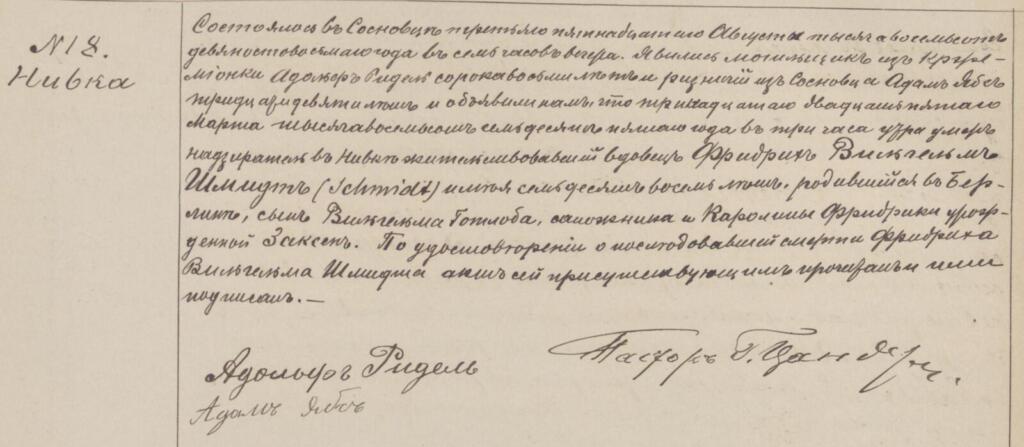 N 18.
Нивка
Состоялось въ Сосновцѣ третьяго пятнадцатаго Августа тысяча восемьсотъ
девяностовосьмаго года въ семь часовъ вечера. Явились могильщикъ изъ
Адольфъ Ридель сорока восьми лѣтъ и изъ Сосновца Адамъ Ябсъ
тридцати девяти лѣтъ и объявили намъ, что тринадцатаго двадцать пятаго
Марта тысяча восемьсотъ семьдесятъ пятаго года въ три часа утра умеръ
надзиратель въ Нивкѣ жительствовавшій вдовецъ Фридрихъ Вильгельмъ
Шмидтъ (Schmidt) имѣя семьдесятъ восемь лѣтъ, родившійся въ Бер-
линѣ, сынъ Вильгельма Готлоба, сапожника и Каролины Фридрики урож-
денной Заксенъ. По удостовѣреніи о послѣдовавшей смерти Фридриха
Вильгельма Шмидта актъ сей присутствующимъ прочитанъ и ими
подписанъ. —
Пасторъ Г. Цандеръ.
Адольфъ Ридель
Адамъ Ябсъ